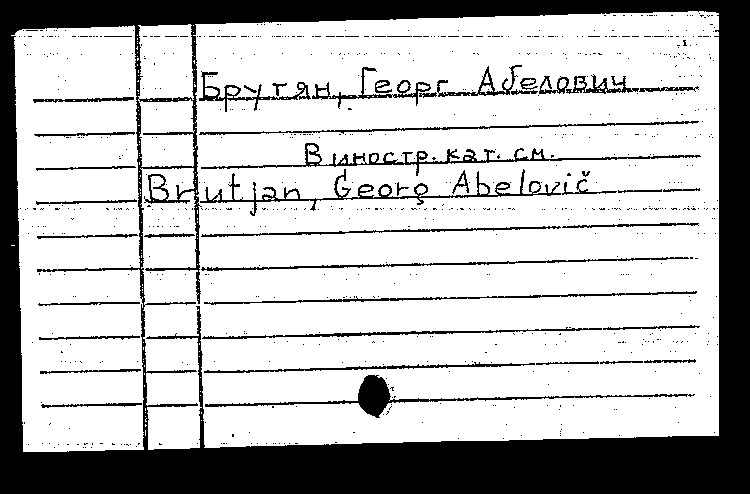 Брутян, Георг Абелович
В иностр. кат. см.
Brutjan, Georg Abelovič